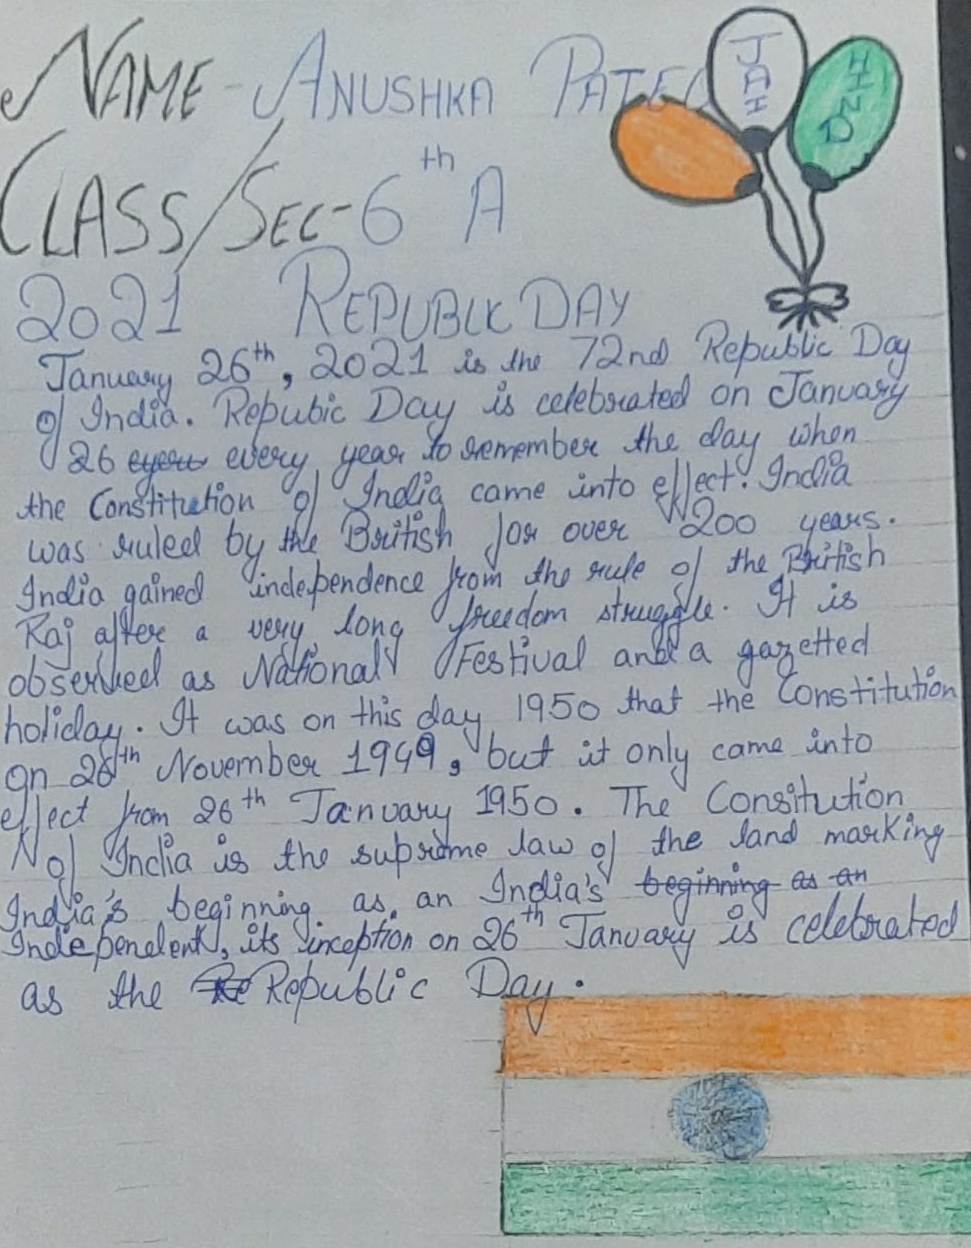 NAME - ANUSHKA PATEL
JAI
HIND
CLASS/SEC-6th A
2021 REPUBLIC DAY
January 26th, 2021 is the 72nd Republic Day
of India. Repubic Day is celebrated on January
26 every year to remember the day when
the Constitution of India came into effect. India
was ruled by the British for over 200 years.
India gained independence from the rule of the British
Raj after a very long freedom struggle. It is
observed as National Festival and a gazetted
holiday. It was on this day 1950 that the Constitution
on 26th November 1949, but it only came into
effect from 26th January 1950. The Consitution
of India is the supreme law of the land marking
India's beginning as an India's beginning as an
Independent, its inception on 26th January is celebrated
as the Republic Day.